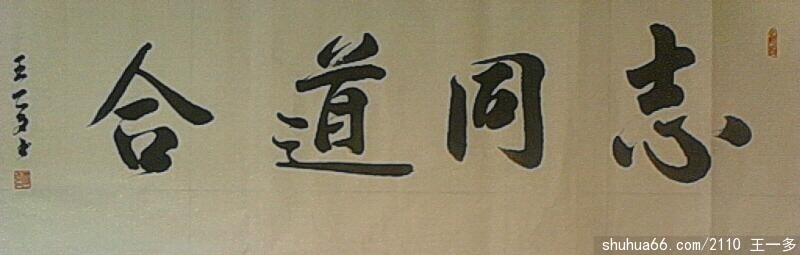 志同道合
王一多书
shuhua66.com/2110 王一多